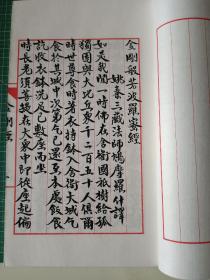 金剛般若波羅蜜經
姚秦三藏法師鳩摩羅什譯
如是我聞一時佛在舍衛國祇樹給孤
獨園與大比丘衆千二百五十人俱爾
時世尊食時著衣持鉢入舍衛大城乞
食於其城中次第乞已還至本處飯食
訖收衣鉢洗足已敷座而坐
時長老須菩提在大衆中即從座起偏
金剛經